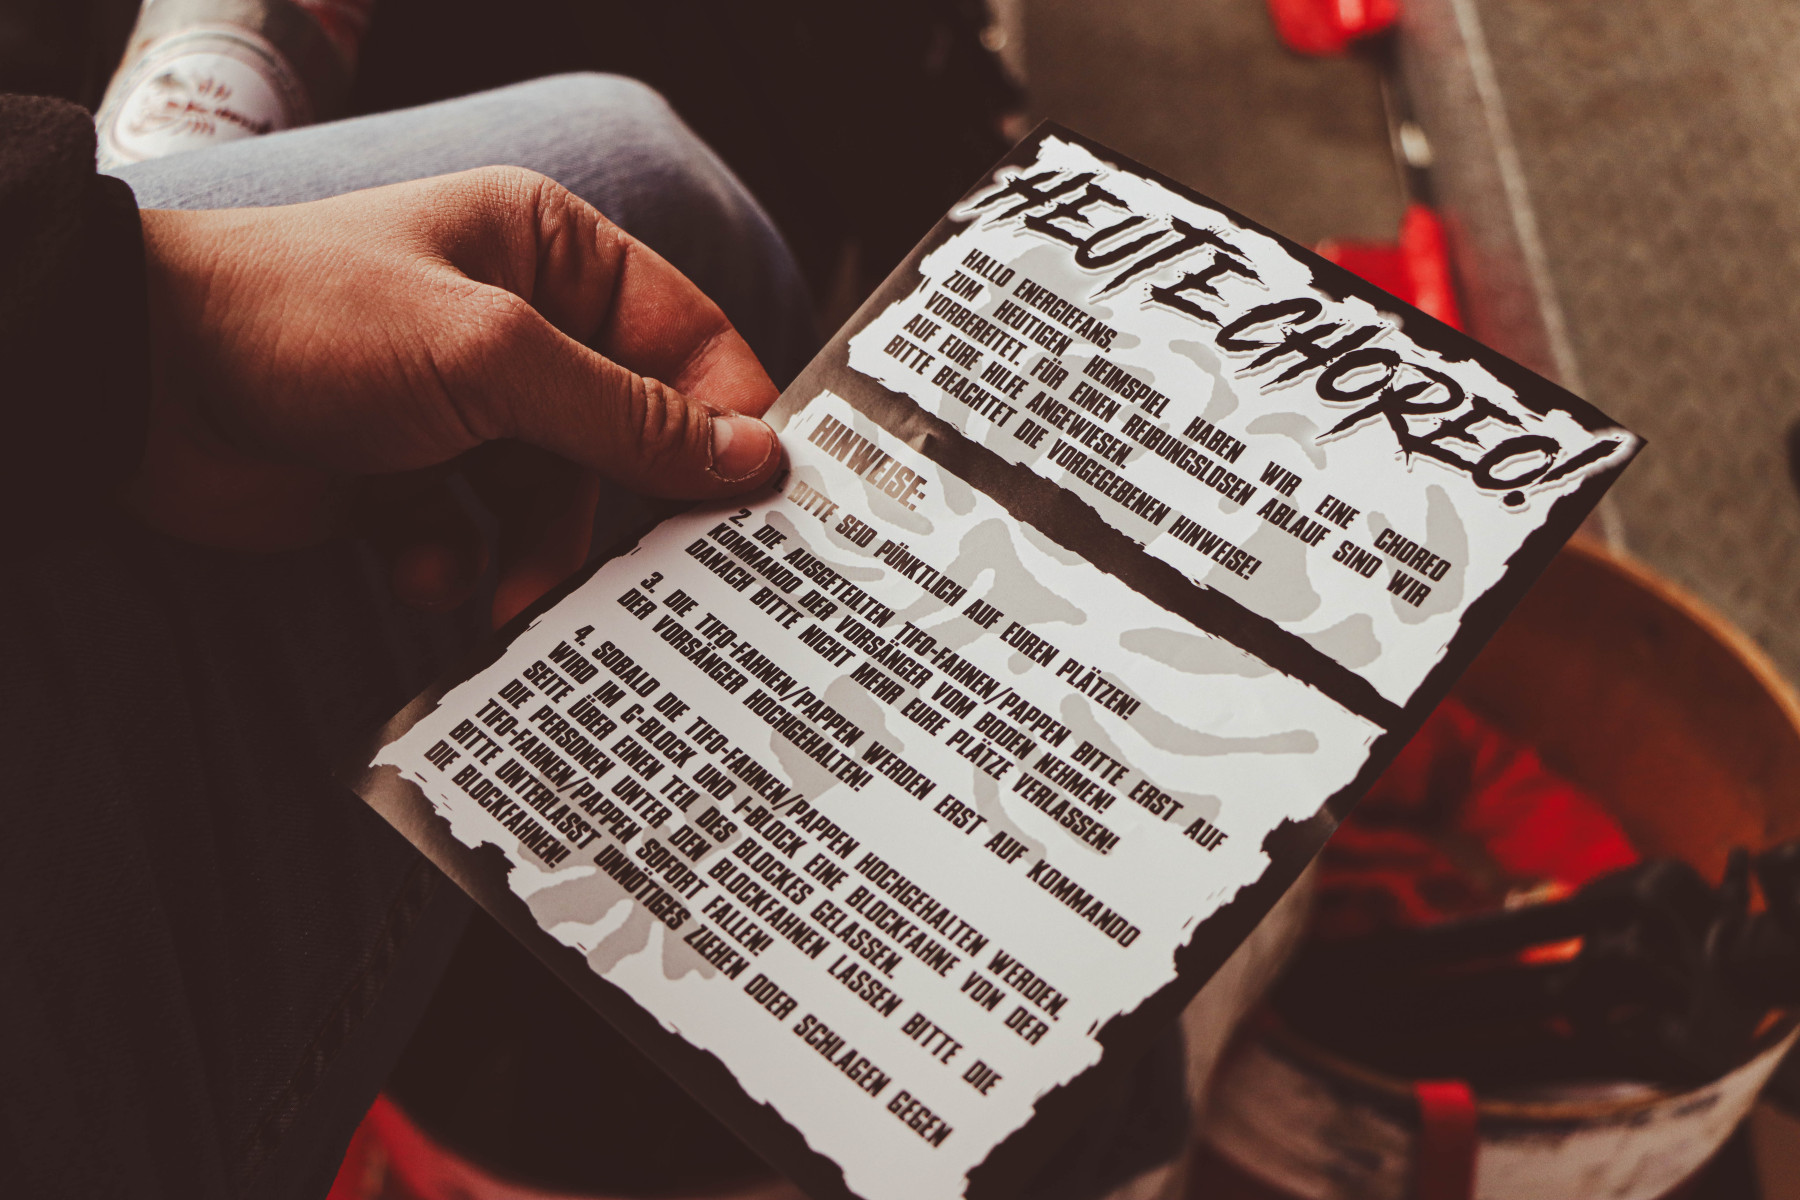 HEUTE CHOREO!
HALLO ENERGIEFANS,
ZUM HEUTIGEN HEIMSPIEL HABEN WIR EINE CHOREO
VORBEREITET. FÜR EINEN REIBUNGSLOSEN ABLAUF SIND WIR
AUF EURE HILFE ANGEWIESEN.
BITTE BEACHTET DIE VORGEGEBENEN HINWEISE!
HINWEISE:
1. BITTE SEID PÜNKTLICH AUF EUREN PLÄTZEN!
2. DIE AUSGETEILTEN TIFO-FAHNEN/PAPPEN BITTE ERST AUF
KOMMANDO DER VORSÄNGER VOM BODEN NEHMEN!
DANACH BITTE NICHT MEHR EURE PLÄTZE VERLASSEN!
3. DIE TIFO-FAHNEN/PAPPEN WERDEN ERST AUF KOMMANDO
DER VORSÄNGER HOCHGEHALTEN!
4. SOBALD DIE TIFO-FAHNEN/PAPPEN HOCHGEHALTEN WERDEN,
WIRD IM G-BLOCK UND I-BLOCK EINE BLOCKFAHNE VON DER
SEITE ÜBER EINEN TEIL DES BLOCKES GELASSEN.
DIE PERSONEN UNTER DEN BLOCKFAHNEN LASSEN BITTE DIE
TIFO-FAHNEN/PAPPEN SOFORT FALLEN!
BITTE UNTERLASST UNNÖTIGES ZIEHEN ODER SCHLAGEN GEGEN
DIE BLOCKFAHNEN!